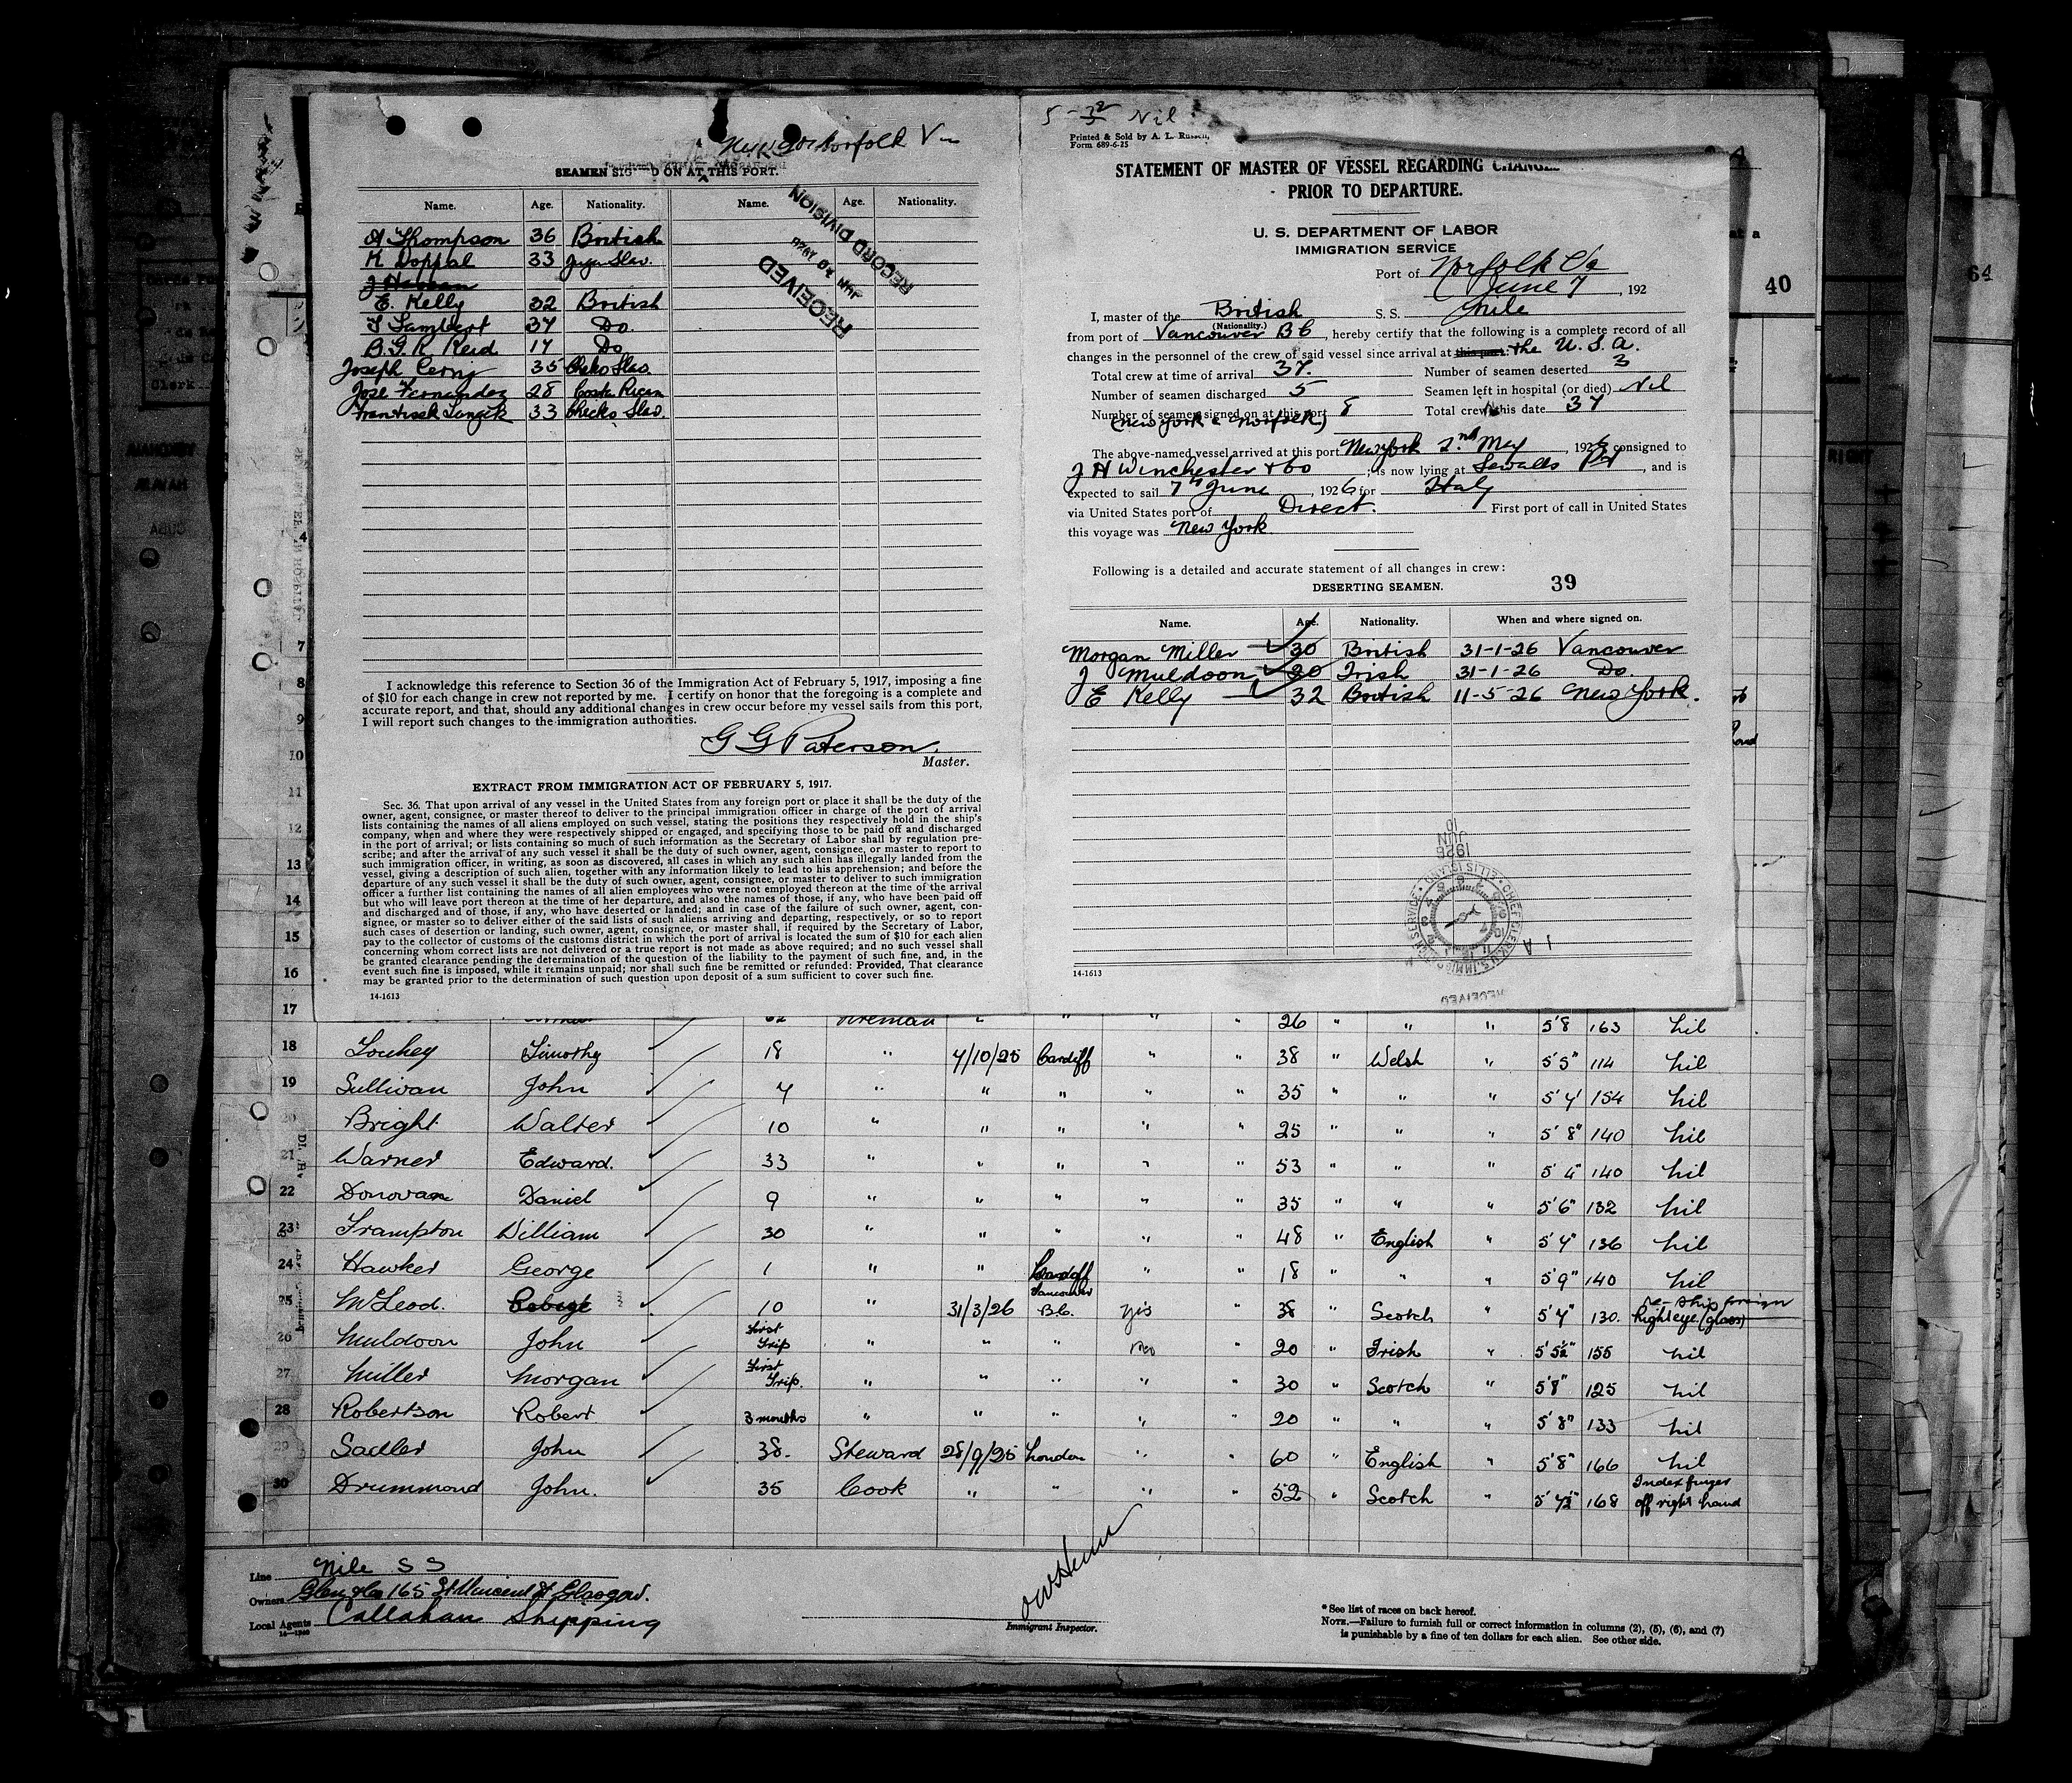 New York & Norfolk Va
SEAMEN SIGNED ON AT THIS PORT.
Name. Age. Nationality. Name. Age. Nationality.
A Thompson 36 British
K Doppal 33 Jugo Slav.
E. Kelly 32 British
T Lambert 37 Do.
B.G.R. Reid 17 Do
Joseph Cerny 35 Checko Slav.
Jose Fernandez 28 Costa Rican
33 Checko Slav.
RECEIVED
JUN 30 1926
RECORD DIVISION
I acknowledge this reference to Section 36 of the Immigration Act of February 5, 1917, imposing a fine
of $10 for each change in crew not reported by me. I certify on honor that the foregoing is a complete and
accurate report, and that, should any additional changes in crew occur before my vessel sails from this port,
I will report such changes to the immigration authorities.
G G Paterson.
Master.
EXTRACT FROM IMMIGRATION ACT OF FEBRUARY 5, 1917.
Sec. 36. That upon arrival of any vessel in the United States from any foreign port or place it shall be the duty of the
owner, agent, consignee, or master thereof to deliver to the principal immigration officer in charge of the port of arrival
lists containing the names of all aliens employed on such vessel, stating the positions they respectively hold in the ship's
company, when and where they were respectively shipped or engaged, and specifying those to be paid off and discharged
in the port of arrival; or lists containing so much of such information as the Secretary of Labor shall by regulation pre-
scribe; and after the arrival of any such vessel it shall be the duty of such owner, agent, consignee, or master to report to
such immigration officer, in writing, as soon as discovered, all cases in which any such alien has illegally landed from the
vessel, giving a description of such alien, together with any information likely to lead to his apprehension; and before the
departure of any such vessel it shall be the duty of such owner, agent, consignee, or master to deliver to such immigration
officer a further list containing the names of all alien employees who were not employed thereon at the time of the arrival
but who will leave port thereon at the time of her departure, and also the names of those, if any, who have been paid off
and discharged and of those, if any, who have deserted or landed; and in case of the failure of such owner, agent, con-
signee, or master so to deliver either of the said lists of such aliens arriving and departing, respectively, or so to report
such cases of desertion or landing, such owner, agent, consignee, or master shall, if required by the Secretary of Labor,
pay to the collector of customs of the customs district in which the port of arrival is located the sum of $10 for each alien
concerning whom correct lists are not delivered or a true report is not made as above required; and no such vessel shall
be granted clearance pending the determination of the question of the liability to the payment of such fine, and, in the
event such fine is imposed, while it remains unpaid; nor shall such fine be remitted or refunded: Provided, That clearance
may be granted prior to the determination of such question upon deposit of a sum sufficient to cover such fine.
14-1613
Nil
Printed & Sold by A. L. Russell,
Form 689-6-25
STATEMENT OF MASTER OF VESSEL REGARDING CHANGES
PRIOR TO DEPARTURE.
U. S. DEPARTMENT OF LABOR
IMMIGRATION SERVICE
Port of Norfolk Va
June 7, 192
I, master of the British S. S. Nile
(Nationality.)
from port of Vancouver B C, hereby certify that the following is a complete record of all
changes in the personnel of the crew of said vessel since arrival at this port: the U. S. A.
Total crew at time of arrival 37. Number of seamen deserted 3
Number of seamen discharged 5 Seamen left in hospital (or died) Nil
Number of seamen signed on at this port 8 Total crew this date 37
(New York & Norfolk)
The above-named vessel arrived at this port New York 2nd May, 1926 consigned to
J H Winchester & Co; is now lying at Sewalls Pt, and is
expected to sail 7th June, 1926 for Italy
via United States port of Direct. First port of call in United States
this voyage was New York.
Following is a detailed and accurate statement of all changes in crew:
DESERTING SEAMEN. 39
Name. Age. Nationality. When and where signed on.
Morgan Miller 30 British 31-1-26 Vancouver
J Muldoon 20 Irish 31-1-26 Do.
E Kelly 32 British 11-5-26 New York.
1926
JUN
10
CHIEF CLERK U.S. IMMIGRATION SERVICE ELLIS ISLAND
RECEIVED
14-1613
40
64
4
7
8
9
10
11
12
13
14
15
16
17 Fireman " " " " 26 " " " 5'8 163 Nil
18 Touhey Timothy 18 " 4/10/25 Cardiff " " 38 " Welsh " 5'5" 114 Nil
19 Sullivan John 7 " " " " " 35 " " " 5'7' 154 Nil
20 Bright Walter 10 " " " " " 25 " " " 5'8" 140 Nil
21 Warner Edward. 33 " " " " " 53 " " " 5'4" 140 Nil
22 Donovan Daniel 9 " " " " " 35 " " " 5'6" 132 Nil
23 Frampton William 30 " " " " " 48 " English " 5'7" 136 Nil
24 Hawker George 1 " " Cardiff " " 18 " " " 5'9" 140 Nil
25 McLeod. 10 " 31/3/26 Vancouver B.C. Yes " 38 " Scotch " 5'7" 130. Re-ship foreign Right eye (glass)
26 Muldoon John First Trip " " " No " 20 " Irish " 5'5½" 155 Nil
27 Miller Morgan First Trip. " " " " " 30 " Scotch " 5'8" 125 Nil
28 Robertson Robert 3 months " " " " " 20 " " " 5'8" 133 Nil
29 Sadler John 38. Steward 28/9/25 London " " 60 " English " 5'8" 166 Nil
30 Drummond John. 35 Cook " " " " 52 " Scotch " 5'7½" 168 Index finger off right hand
Line Nile S S
Owners Glen & Co 165 St Vincent St Glasgow.
Local Agents Callahan Shipping
Immigrant Inspector.
* See list of races on back hereof.
NOTE.—Failure to furnish full or correct information in columns (2), (5), (6), and (7)
is punishable by a fine of ten dollars for each alien. See other side.